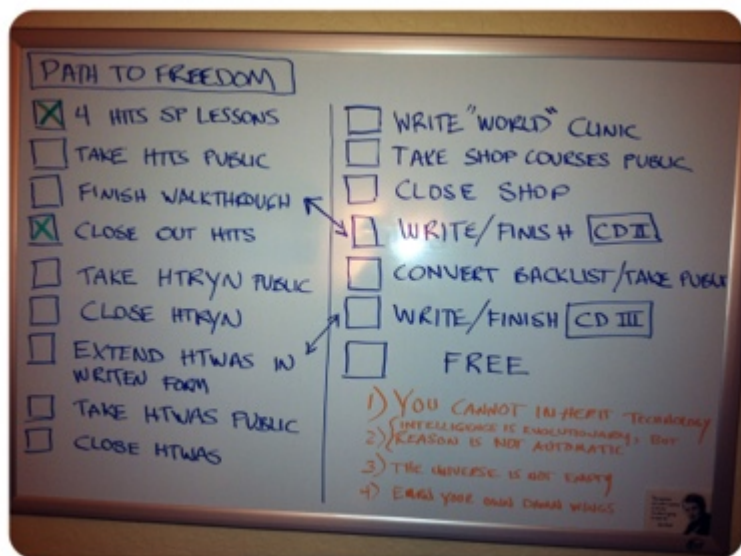 PATH TO FREEDOM
4 HITS SP LESSONS
TAKE HITS PUBLIC
FINISH WALKTHROUGH
CLOSE OUT HITS
TAKE HTRYN PUBLIC
CLOSE HTRYN
EXTEND HTWAS IN
WRITEN FORM
TAKE HTWAS PUBLIC
CLOSE HTWAS
WRITE "WORLD" CLINIC
TAKE SHOP COURSES PUBLIC
CLOSE SHOP
WRITE/FINISH CD II
CONVERT BACKLIST/TAKE PUBLIC
WRITE/FINISH CD III
FREE
1) YOU CANNOT INHERIT TECHNOLOGY
2) INTELLIGENCE IS EVOLUTIONARY, BUT
REASON IS NOT AUTOMATIC
3) THE UNIVERSE IS NOT EMPTY
4) EARN YOUR OWN DAMN WINGS